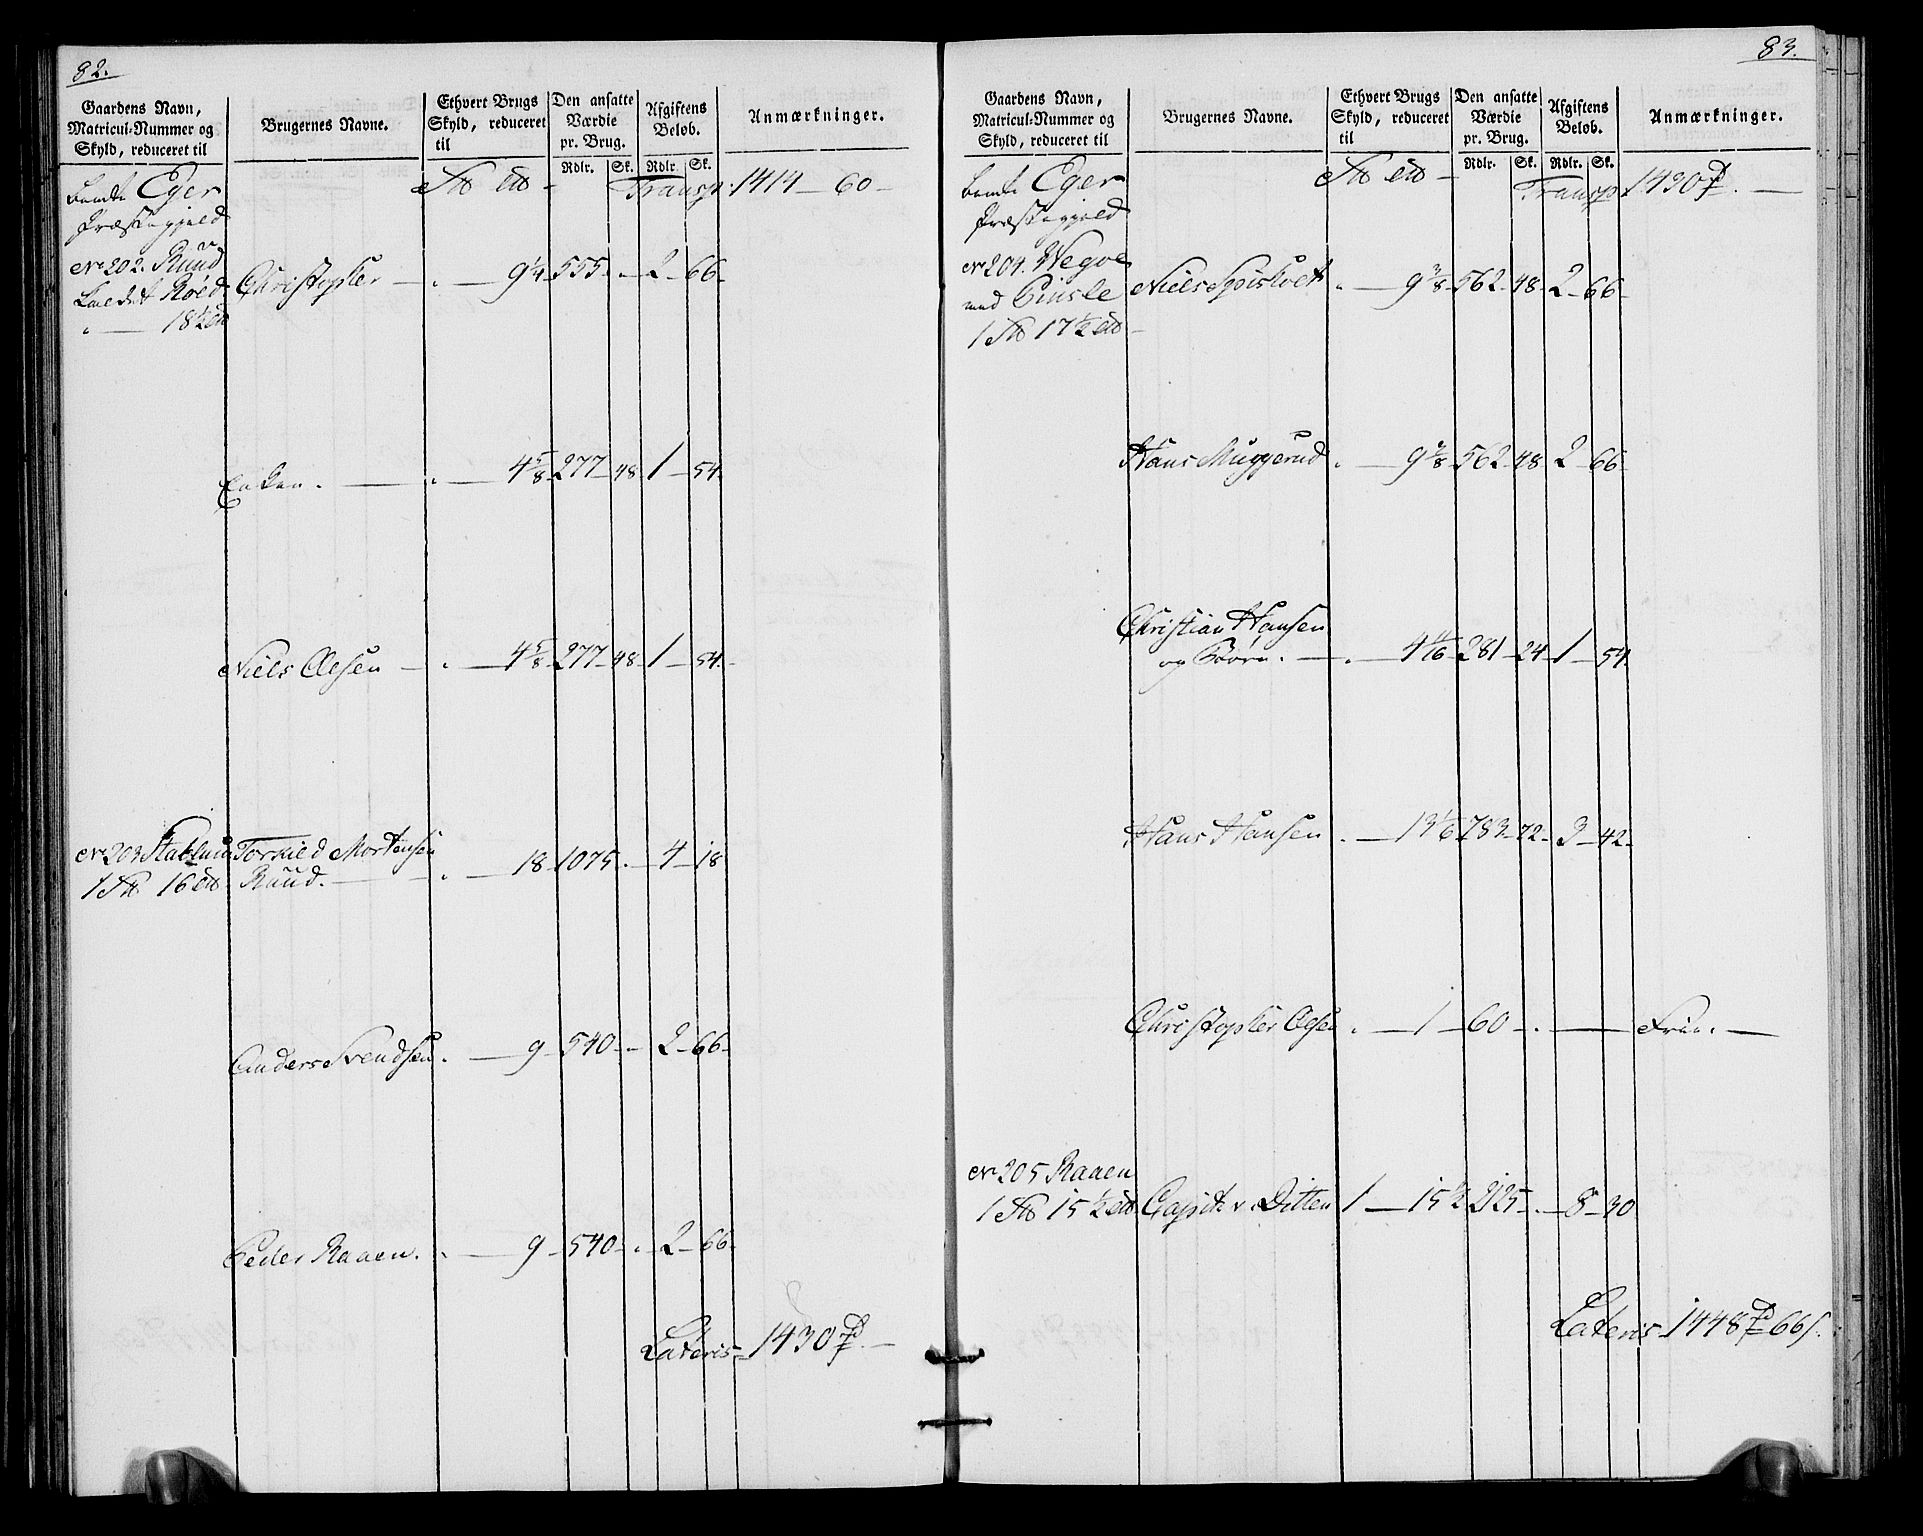 82.
Gaardens Navn,
Matricul-Nummer og
Skyld, reduceret til
Brugernes Navne.
Ethvert Brugs
Skyld, reduceret
til
Den ansatte
Værdie
pr. Brug.
Rdlr. Sk.
Afgiftens
Beløb.
Rdlr. Sk.
Anmærkninger.
Eger
Præstegjeld
Transp. 1414 - 60 -
No 202. Ruud
kaldet Röed
18½
Christopher - 9¼ - 555 - 2 - 66 -
Enken. - 4⅝ - 277 - 48 - 1 - 54.
Niels Olesen - 4⅝ - 277 - 48 - 1 - 54 -
No 203
1 16
Torkild Mortensen
Ruud. - 18 - 1075 - 4 - 18
Anders Svendsen. - 9 - 540 - 2 - 66 -
Peder Raaen. - 9 - 540 - 2 - 66 -
Lateris 1430
83.
Gaardens Navn,
Matricul-Nummer og
Skyld, reduceret til
Brugernes Navne.
Ethvert Brugs
Skyld, reduceret
til
Den ansatte
Værdie
pr. Brug.
Rdlr. Sk.
Afgiftens
Beløb.
Rdlr. Sk.
Anmærkninger.
Eger
Præstegjeld
Transp. 1430
No 204.
med
1 17½
Niels - 9⅜ - 562 - 48 - 2 - 66 -
Hans Muggerud - 9⅜ - 562 - 48 - 2 - 66
Christian Hansen
og Børn. - 4 11/16 - 281 - 24 - 1 - 54.
Hans Hansen - 13 1/16 - 783 - 72 - 3 - 42 -
Christopher Olsen - 1 - 60 - Frie. -
No 205 Raaen
1 15½
Capit. v. Ditten 1 - 15½ 2125 - 8 - 30
Lateris 1448 66